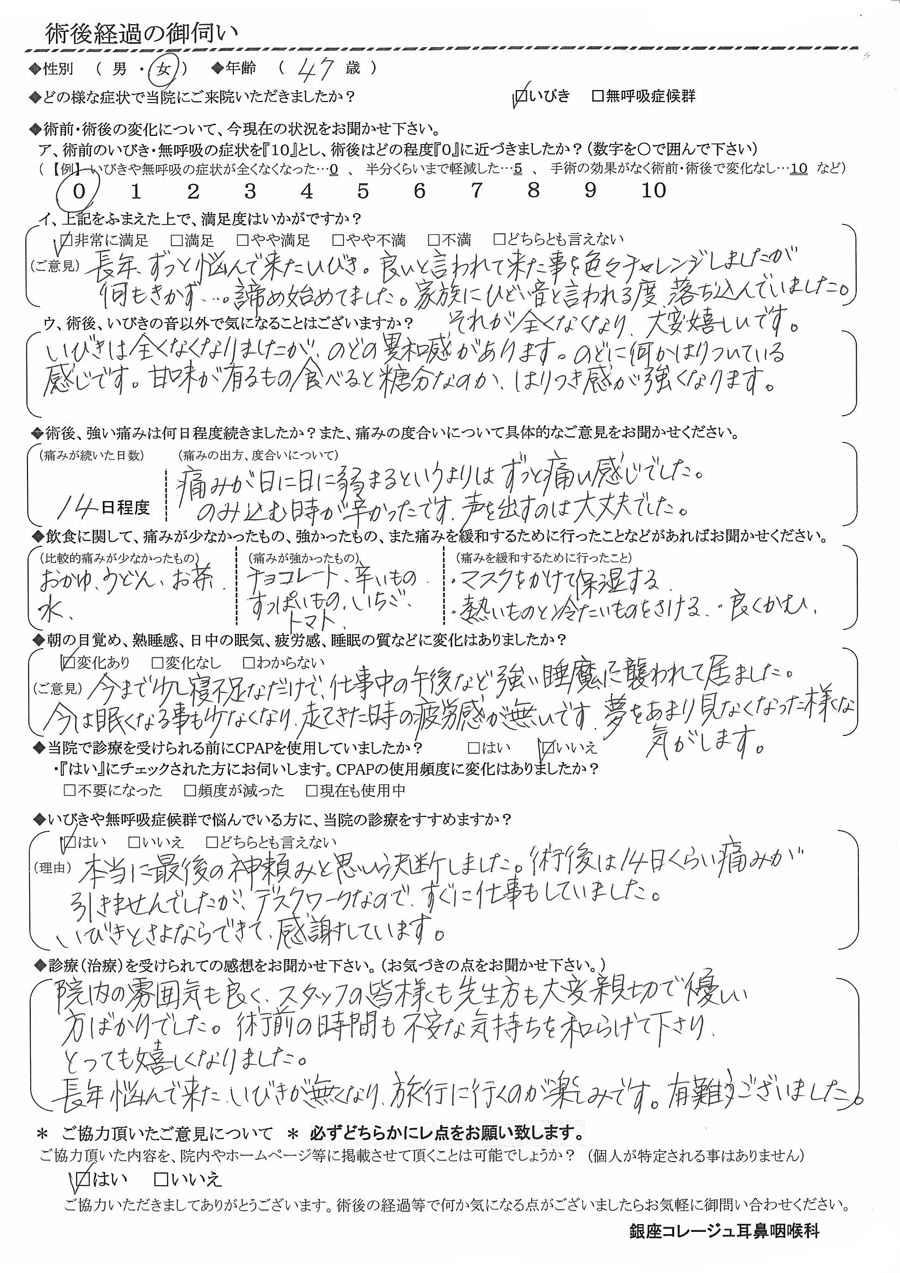 術後経過の御伺い
◆性別 ( 男 ・ 女 ) ◆年齢 ( 47 歳 )
◆どの様な症状で当院にご来院いただきましたか? ☑いびき □無呼吸症候群
◆術前・術後の変化について、今現在の状況をお聞かせ下さい。
ア、術前のいびき・無呼吸の症状を『10』とし、術後はどの程度『0』に近づきましたか?(数字を〇で囲んで下さい)
(【例】いびきや無呼吸の症状が全くなくなった…0 、 半分くらいまで軽減した…5 、 手術の効果がなく術前・術後で変化なし…10 など)
0 1 2 3 4 5 6 7 8 9 10
イ、上記をふまえた上で、満足度はいかがですか?
☑非常に満足 □満足 □やや満足 □やや不満 □不満 □どちらとも言えない
(ご意見) 長年、ずっと悩んで来たいびき。良いと言われて来た事を色々チャレンジしましたが
何もきかず…。諦め始めてました。家族にひどい音と言われる度、落ち込んでいました。
それが全くなくなり、大変嬉しいです。
ウ、術後、いびきの音以外で気になることはございますか?
いびきは全くなくなりましたが、のどの異和感があります。のどに何かはりついている
感じです。甘味が有るもの食べると糖分なのか、はりつき感が強くなります。
◆術後、強い痛みは何日程度続きましたか?また、痛みの度合いについて具体的なご意見をお聞かせください。
(痛みが続いた日数) (痛みの出方、度合いについて)
痛みが日に日に弱まるというよりは ずっと痛い感じでした。
14日程度 のみ込む時が辛かったです、声を出すのは大丈夫でした。
◆飲食に関して、痛みが少なかったもの、強かったもの、また痛みを緩和するために行ったことなどがあればお聞かせください。
(比較的痛みが少なかったもの) (痛みが強かったもの) (痛みを緩和するために行ったこと)
おかゆ、うどん、お茶、 チョコレート、辛いもの ・マスクをかけて保湿する
水、 すっぱいもの、いちご、 ・熱いものと冷たいものをさける ・良くかむ、
トマト
◆朝の目覚め、熟睡感、日中の眠気、疲労感、睡眠の質などに変化はありましたか?
☑変化あり □変化なし □わからない
(ご意見) 今まで少し寝不足なだけで、仕事中の午後など強い睡魔に襲われて居ました。
今は眠くなる事も少なくなり、走てきた時の疲労感が無いです、夢をあまり見なくなった様な
気がします。
◆当院で診療を受けられる前にCPAPを使用していましたか? □はい ☑いいえ
・『はい』にチェックされた方にお伺いします。CPAPの使用頻度に変化はありましたか?
□不要になった □頻度が減った □現在も使用中
◆いびきや無呼吸症候群で悩んでいる方に、当院の診療をすすめますか?
☑はい □いいえ □どちらとも言えない
(理由) 本当に最後の神頼みと思いう決断しました。術後は14日くらい痛みが
引きませんでしたが、デスクワークなので、すぐに仕事もしていました。
いびきとさよならできて、感謝しています。
◆診療(治療)を受けられての感想をお聞かせ下さい。(お気づきの点をお聞かせ下さい。)
院内の雰囲気も良く、スタッフの皆様も先生方も大変親切で優しい
方ばかりでした。術前の日時間も不安な気持ちを和らげて下さり、
とっても嬉しくなりました。
長年悩んで来た、いびきが無くなり、旅行に行くのが楽しみです。有難うございました。
* ご協力頂いたご意見について * 必ずどちらかにレ点をお願い致します。
ご協力頂いた内容を、院内やホームページ等に掲載させて頂くことは可能でしょうか? (個人が特定される事はありません)
☑はい □いいえ
ご協力いただきましてありがとうございます。術後の経過等で何か気になる点がございましたらお気軽に御問い合わせください。
銀座コレージュ耳鼻咽喉科